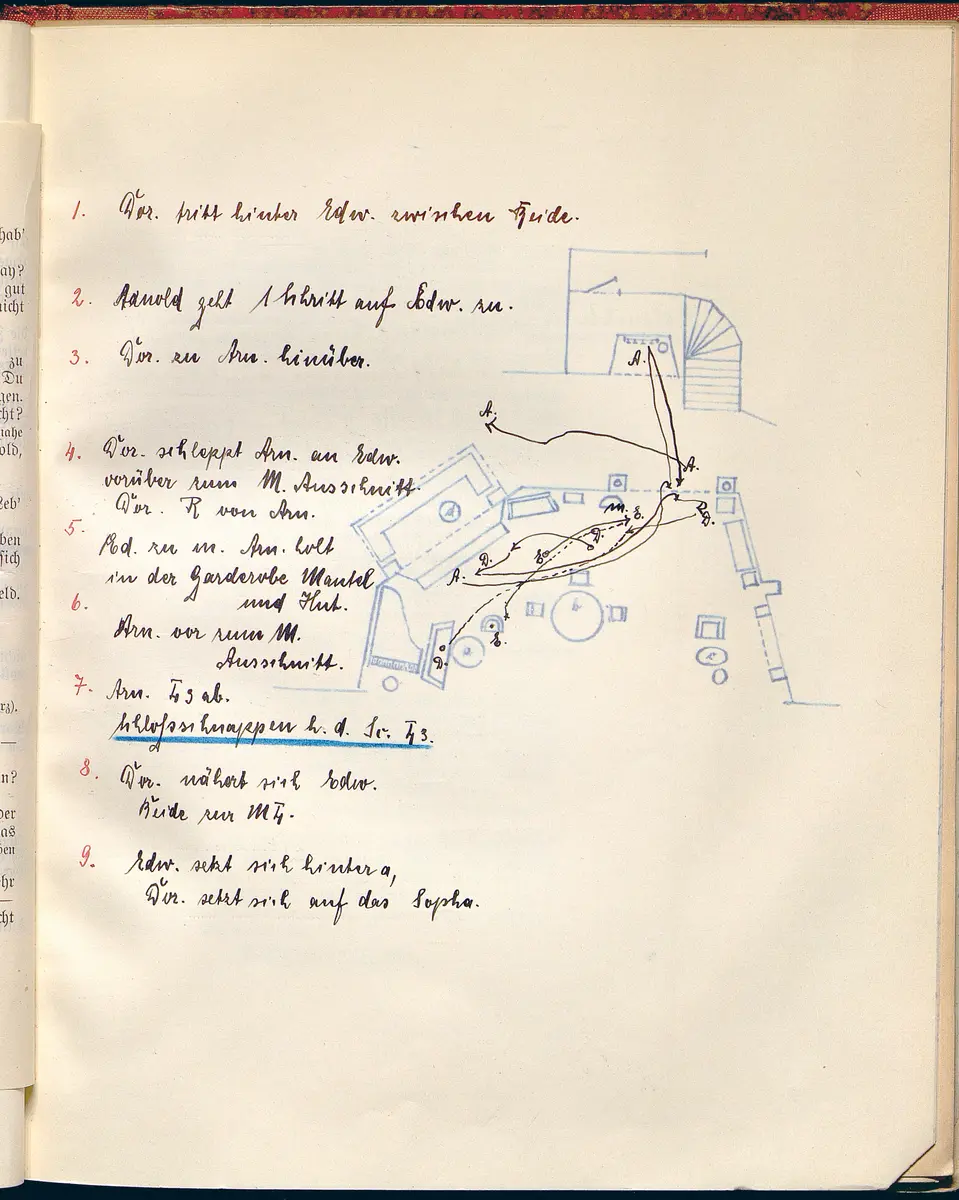 hab'
ay?
gut
nicht
zu
Du
gen.
cht?
nahe
old,
Leb'
ben
sich
eld.
rz).
n?
der
as
ben
hr
cht
1. Dor. tritt hinter Edw. zwischen Beide.
2. Arnold geht 1 Schritt auf Edw. zu.
3. Dor. zu Arn. hinüber.
4. Dor. schleppt Arn. an Edw.
vorüber zum M. Ausschnitt.
Dor. R von Arn.
5. Ed. zu m. Arn. holt
in der Garderobe Mantel
und Hut.
6. Arn. vor zum M.
Ausschnitt.
7. Arn. 3 ab.
Schloßschnappen h. d. Sc. 3.
8. Dor. nähert sich Edw.
Beide zur
9. Edw. setzt sich hinter a,
Dor. setzt sich auf das Sopha.
A.
A.
A.
m.
E.
D.
D.
E.
D.
A.
E.
D.